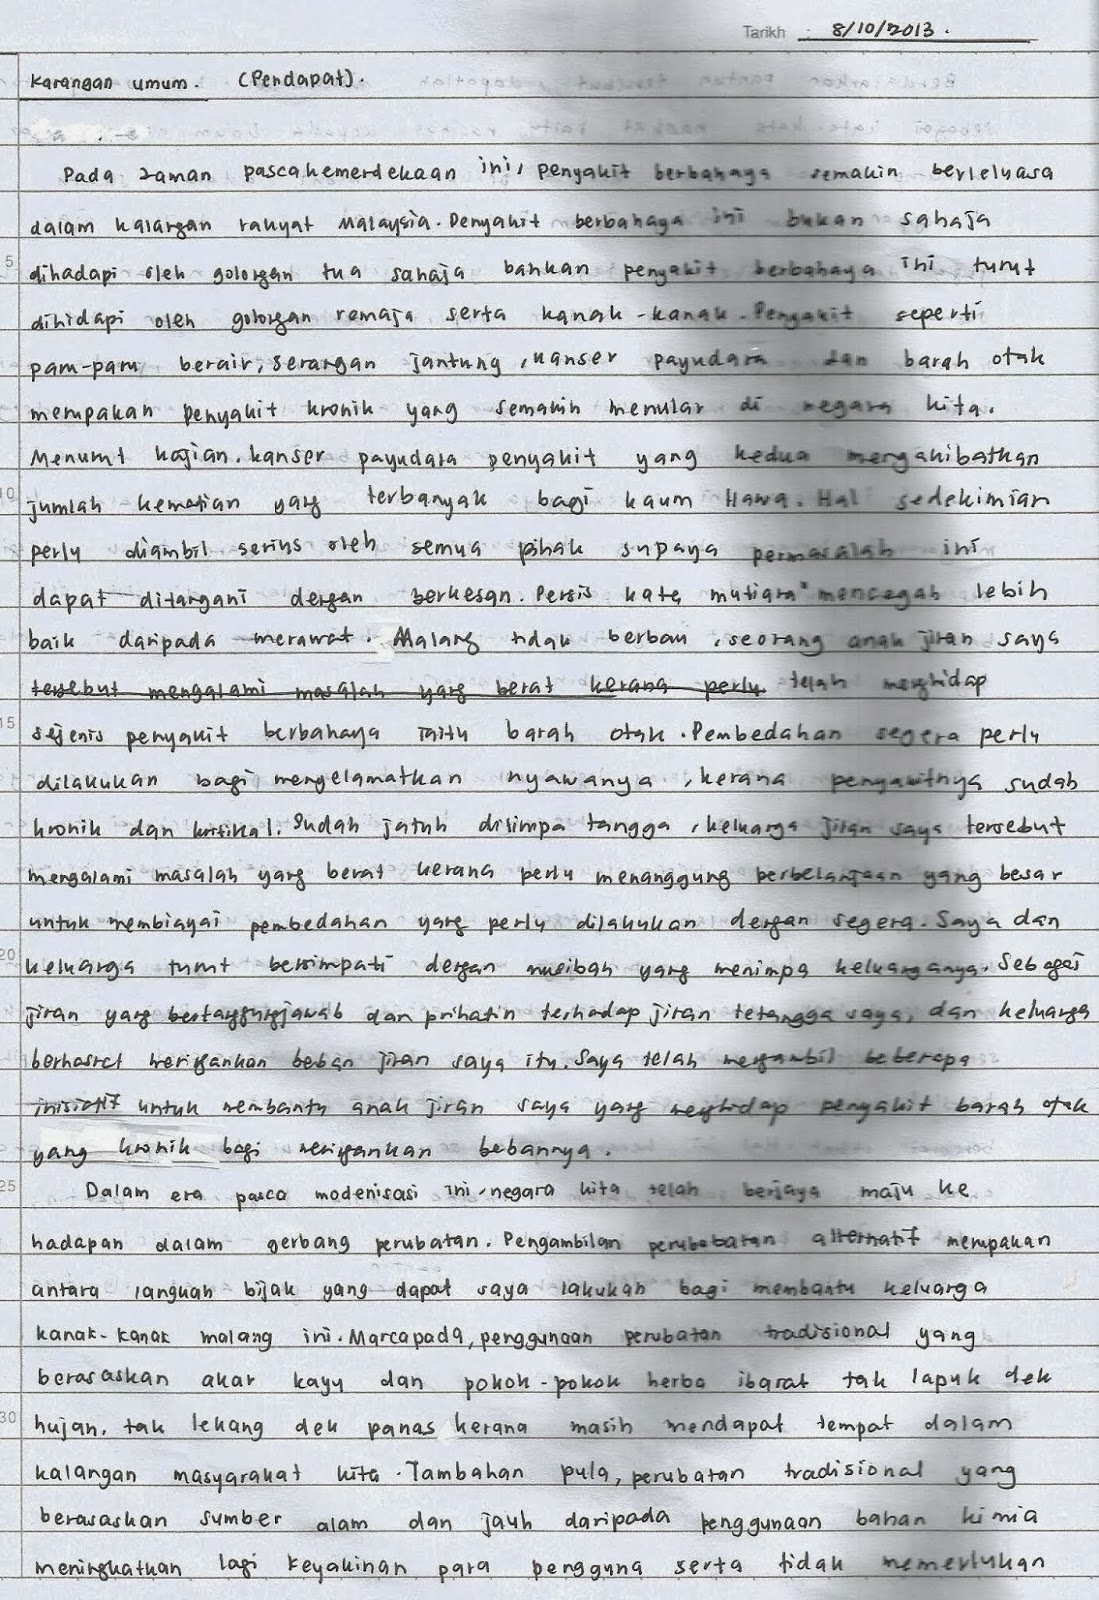 Tarikh : 8/10/2013.
Karangan umum. (Pendapat).
Pada zaman pascakemerdekaan ini, penyakit berbahaya semakin berleluasa
dalam kalangan rakyat Malaysia. Penyakit berbahaya ini bukan sahaja
5 dihadapi oleh golongan tua sahaja bahkan penyakit berbahaya ini turut
dihidapi oleh golongan remaja serta kanak-kanak. Penyakit seperti
pam-paru berair, serangan jantung, kanser payudara dan barah otak
merupakan penyakit kronik yang semakin menular di negara kita.
Menurut kajian, kanser payudara penyakit yang kedua mengakibatkan
10 jumlah kematian yang terbanyak bagi kaum Hawa. Hal sedekimian
perlu diambil serius oleh semua pihak supaya permasalah ini
dapat ditangani dengan berkesan. Persis kata mutiara "mencegah lebih
baik daripada merawat. Malang tidak berbau, seorang anak jiran saya
tersebut mengalami masalah yang berat kerana perlu telah menghidap
15 sejenis penyakit berbahaya iaitu barah otak. Pembedahan segera perlu
dilakukan bagi menyelamatkan nyawanya, kerana penyakitnya sudah
kronik dan kritikal. Sudah jatuh ditimpa tangga, keluarga jiran saya tersebut
mengalami masalah yang berat kerana perlu menanggung perbelanjaan yang besar
untuk membiayai pembedahan yang perlu dilakukan dengan segera. Saya dan
20 keluarga turut bersimpati dengan musibah yang menimpa keluarganya. Sebagai
jiran yang bertanggungjawab dan prihatin terhadap jiran tetangga saya, dan keluarga
berhasrat meringankan beban jiran saya itu. Saya telah mengambil beberapa
inisiatif untuk membantu anak jiran saya yang menghidap penyakit barah otak
yang kronik bagi meringankan bebannya.
25 Dalam era pasca modenisasi ini, negara kita telah berjaya maju ke
hadapan dalam gerbang perubatan. Pengambilan perubabatan alternatif merupakan
antara langkah bijak yang dapat saya lakukan bagi membantu keluarga
kanak-kanak malang ini. Marcapada, penggunaan perubatan tradisional yang
berasaskan akar kayu dan pokok-pokok herba ibarat tak lapuk dek
30 hujan, tak lekang dek panas kerana masih mendapat tempat dalam
kalangan masyarakat kita. Tambahan pula, perubatan tradisional yang
berasaskan sumber alam dan jauh daripada penggunaan bahan kimia
meningkatkan lagi keyakinan para pengguna serta tidak memerlukan